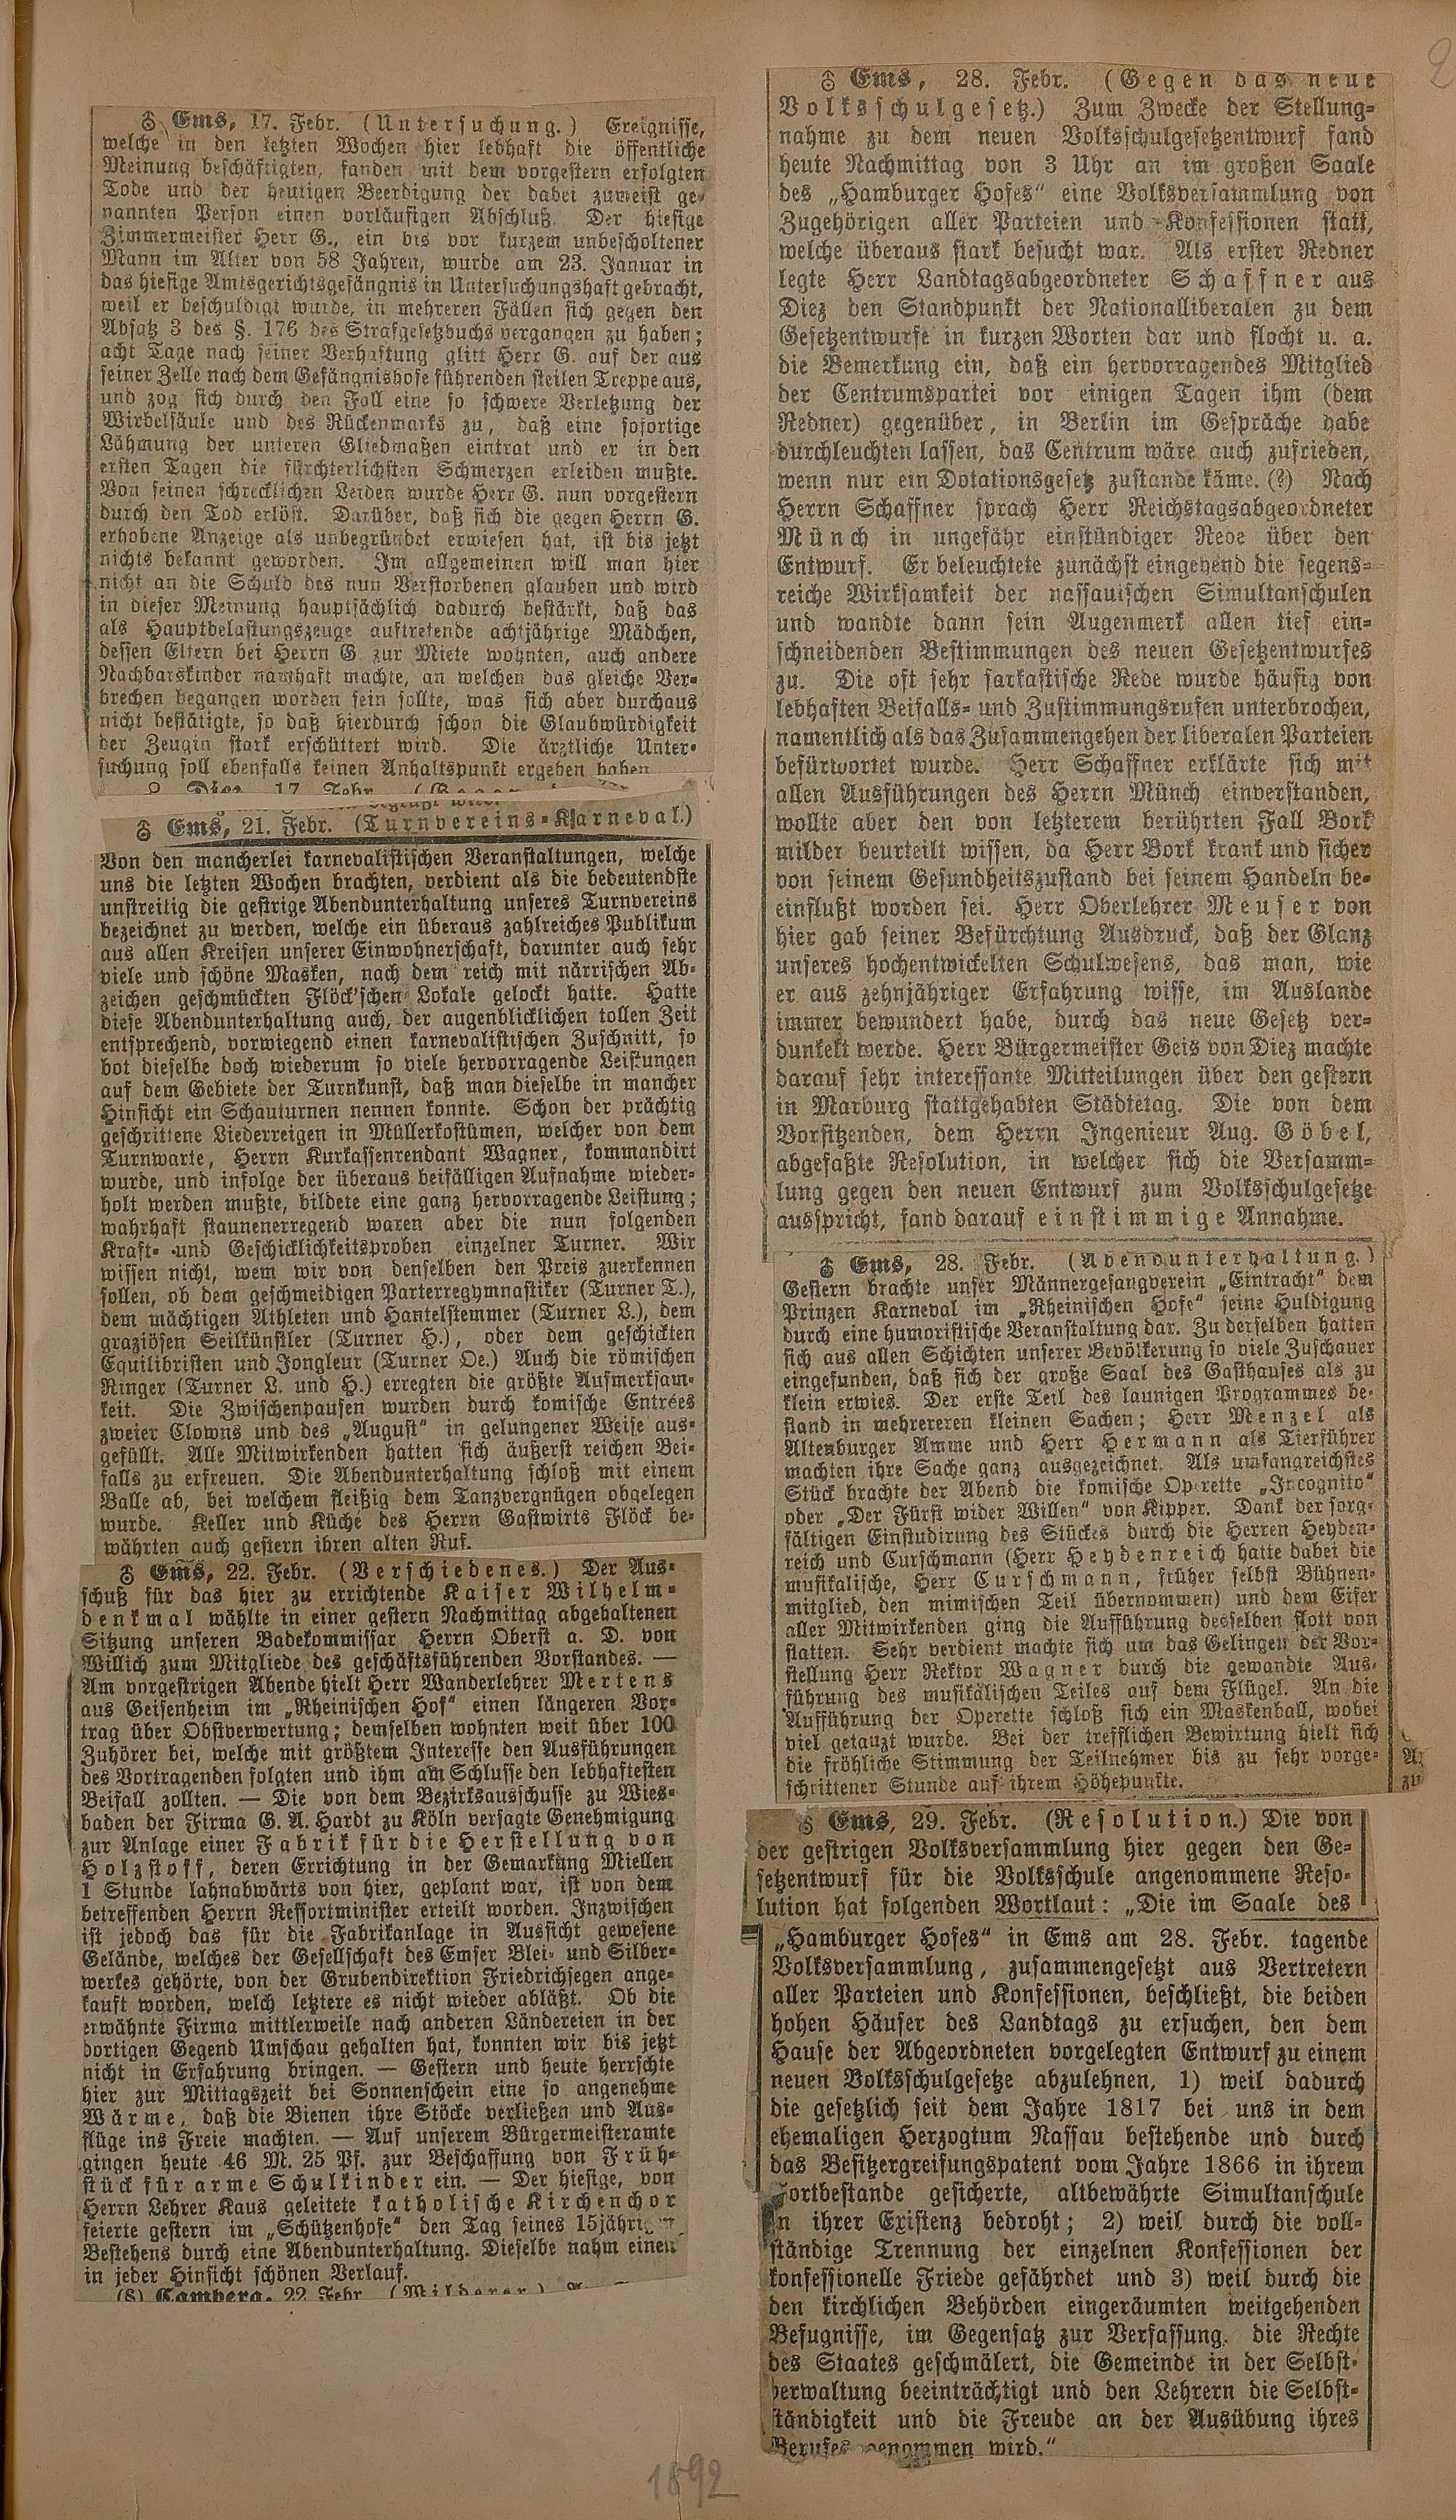 ♁ Ems, 17. Febr. (Untersuchung.) Ereignisse,
welche in den letzten Wochen hier lebhaft die öffentliche
Meinung beschäftigten, fanden mit dem vorgestern erfolgten
Tode und der heutigen Beerdigung der dabei zumeist ge-
nannten Person einen vorläufigen Abschluß. Der hiesige
Zimmermeister Herr G., ein bis vor kurzem unbescholtener
Mann im Alter von 58 Jahren, wurde am 23. Januar in
das hiesige Amtsgerichtsgefängnis in Untersuchungshaft gebracht,
weil er beschuldigt wurde, in mehreren Fällen sich gegen den
Absatz 3 des §. 176 des Strafgesetzbuchs vergangen zu haben;
acht Tage nach seiner Verhaftung glitt Herr G. auf der aus
seiner Zelle nach dem Gefängnishofe führenden steilen Treppe aus,
und zog sich durch den Fall eine so schwere Verletzung der
Wirbelsäule und des Rückenmarks zu, daß eine sofortige
Lähmung der unteren Gliedmaßen eintrat und er in den
ersten Tagen die fürchterlichsten Schmerzen erleiden mußte.
Von seinen schrecklichen Leiden wurde Herr G. nun vorgestern
durch den Tod erlöst. Darüber, daß sich die gegen Herrn G.
erhobene Anzeige als unbegründet erwiesen hat, ist bis jetzt
nichts bekannt geworden. Im allgemeinen will man hier
nicht an die Schuld des nun Verstorbenen glauben und wird
in dieser Meinung hauptsächlich dadurch bestärkt, daß das
als Hauptbelastungszeuge auftretende achtjährige Mädchen,
dessen Eltern bei Herrn G zur Miete wohnten, auch andere
Nachbarskinder namhaft machte, an welchen das gleiche Ver-
brechen begangen worden sein sollte, was sich aber durchaus
nicht bestätigte, so daß hierdurch schon die Glaubwürdigkeit
der Zeugin stark erschüttert wird. Die ärztliche Unter-
suchung soll ebenfalls keinen Anhaltspunkt ergeben haben
Diez, 17. Febr.
♁ Ems, 21. Febr. (Turnvereins-Karneval.)
Von den mancherlei karnevalistischen Veranstaltungen, welche
uns die letzten Wochen brachten, verdient als die bedeutendste
unstreitig die gestrige Abendunterhaltung unseres Turnvereins
bezeichnet zu werden, welche ein überaus zahlreiches Publikum
aus allen Kreisen unserer Einwohnerschaft, darunter auch sehr
viele und schöne Masken, nach dem reich mit närrischen Ab-
zeichen geschmückten Flöck'schen Lokale gelockt hatte. Hatte
diese Abendunterhaltung auch, der augenblicklichen tollen Zeit
entsprechend, vorwiegend einen karnevalistischen Zuschnitt, so
bot dieselbe doch wiederum so viele hervorragende Leistungen
auf dem Gebiete der Turnkunst, daß man dieselbe in mancher
Hinsicht ein Schauturnen nennen konnte. Schon der prächtig
geschrittene Liederreigen in Müllerkostümen, welcher von dem
Turnwarte, Herrn Kurkassenrendant Wagner, kommandirt
wurde, und infolge der überaus beifälligen Aufnahme wieder-
holt werden mußte, bildete eine ganz hervorragende Leistung;
wahrhaft staunenerregend waren aber die nun folgenden
Kraft- und Geschicklichkeitsproben einzelner Turner. Wir
wissen nicht, wem wir von denselben den Preis zuerkennen
sollen, ob dem geschmeidigen Parterregymnastiker (Turner T.),
dem mächtigen Athleten und Hantelstemmer (Turner L.), dem
graziösen Seilkünstler (Turner H.), oder dem geschickten
Equilibristen und Jongleur (Turner Oe.) Auch die römischen
Ringer (Turner L. und H.) erregten die größte Aufmerksam-
keit. Die Zwischenpausen wurden durch komische Entrées
zweier Clowns und des „August“ in gelungener Weise aus-
gefüllt. Alle Mitwirkenden hatten sich äußerst reichen Bei-
falls zu erfreuen. Die Abendunterhaltung schloß mit einem
Balle ab, bei welchem fleißig dem Tanzvergnügen obgelegen
wurde. Keller und Küche des Herrn Gastwirts Flöck be-
währten auch gestern ihren alten Ruf.
♁ Ems, 22. Febr. (Verschiedenes.) Der Aus-
schuß für das hier zu errichtende Kaiser Wilhelm-
denkmal wählte in einer gestern Nachmittag abgehaltenen
Sitzung unseren Badekommissar Herrn Oberst a. D. von
Willich zum Mitgliede des geschäftsführenden Vorstandes. —
Am vorgestrigen Abende hielt Herr Wanderlehrer Mertens
aus Geisenheim im „Rheinischen Hof“ einen längeren Vor-
trag über Obstverwertung; demselben wohnten weit über 100
Zuhörer bei, welche mit größtem Interesse den Ausführungen
des Vortragenden folgten und ihm am Schlusse den lebhaftesten
Beifall zollten. — Die von dem Bezirksausschusse zu Wies-
baden der Firma G. A. Hardt zu Köln versagte Genehmigung
zur Anlage einer Fabrik für die Herstellung von
Holzstoff, deren Errichtung in der Gemarkung Miellen
1 Stunde lahnabwärts von hier, geplant war, ist von dem
betreffenden Herrn Ressortminister erteilt worden. Inzwischen
ist jedoch das für die Fabrikanlage in Aussicht gewesene
Gelände, welches der Gesellschaft des Emser Blei- und Silber-
werkes gehörte, von der Grubendirektion Friedrichsegen ange-
kauft worden, welch letztere es nicht wieder abläßt. Ob die
erwähnte Firma mittlerweile nach anderen Ländereien in der
dortigen Gegend Umschau gehalten hat, konnten wir bis jetzt
nicht in Erfahrung bringen. — Gestern und heute herrschte
hier zur Mittagszeit bei Sonnenschein eine so angenehme
Wärme, daß die Bienen ihre Stöcke verließen und Aus-
flüge ins Freie machten. — Auf unserem Bürgermeisteramte
gingen heute 46 M. 25 Pf. zur Beschaffung von Früh-
stück für arme Schulkinder ein. — Der hiesige, von
Herrn Lehrer Kaus geleitete katholische Kirchenchor
feierte gestern im „Schützenhofe“ den Tag seines 15jährigen
Bestehens durch eine Abendunterhaltung. Dieselbe nahm einen
in jeder Hinsicht schönen Verlauf.
(§) Camberg, 22. Febr. (Milderer.)
1892
♁ Ems, 28. Febr. (Gegen das neue
Volksschulgesetz.) Zum Zwecke der Stellung-
nahme zu dem neuen Volksschulgesetzentwurf fand
heute Nachmittag von 3 Uhr an im großen Saale
des „Hamburger Hofes“ eine Volksversammlung von
Zugehörigen aller Parteien und Konfessionen statt,
welche überaus stark besucht war. Als erster Redner
legte Herr Landtagsabgeordneter Schaffner aus
Diez den Standpunkt der Nationalliberalen zu dem
Gesetzentwurfe in kurzen Worten dar und flocht u. a.
die Bemerkung ein, daß ein hervorragendes Mitglied
der Centrumspartei vor einigen Tagen ihm (dem
Redner) gegenüber, in Berlin im Gespräche habe
durchleuchten lassen, das Centrum wäre auch zufrieden,
wenn nur ein Dotationsgesetz zustande käme. (?) Nach
Herrn Schaffner sprach Herr Reichstagsabgeordneter
Münch in ungefähr einstündiger Rede über den
Entwurf. Er beleuchtete zunächst eingehend die segens-
reiche Wirksamkeit der nassauischen Simultanschulen
und wandte dann sein Augenmerk allen tief ein-
schneidenden Bestimmungen des neuen Gesetzentwurfes
zu. Die oft sehr sarkastische Rede wurde häufig von
lebhaften Beifalls- und Zustimmungsrufen unterbrochen,
namentlich als das Zusammengehen der liberalen Parteien
befürwortet wurde. Herr Schaffner erklärte sich mit
allen Ausführungen des Herrn Münch einverstanden,
wollte aber den von letzterem berührten Fall Bork
milder beurteilt wissen, da Herr Bork krank und sicher
von seinem Gesundheitszustand bei seinem Handeln be-
einflußt worden sei. Herr Oberlehrer Meuser von
hier gab seiner Befürchtung Ausdruck, daß der Glanz
unseres hochentwickelten Schulwesens, das man, wie
er aus zehnjähriger Erfahrung wisse, im Auslande
immer bewundert habe, durch das neue Gesetz ver-
dunkelt werde. Herr Bürgermeister Geis von Diez machte
darauf sehr interessante Mitteilungen über den gestern
in Marburg stattgehabten Städtetag. Die von dem
Vorsitzenden, dem Herrn Ingenieur Aug. Göbel,
abgefaßte Resolution, in welcher sich die Versamm-
lung gegen den neuen Entwurf zum Volksschulgesetze
ausspricht, fand darauf einstimmige Annahme.
♁ Ems, 28. Febr. (Abendunterhaltung.)
Gestern brachte unser Männergesangverein „Eintracht“ dem
Prinzen Karneval im „Rheinischen Hofe“ seine Huldigung
durch eine humoristische Veranstaltung dar. Zu derselben hatten
sich aus allen Schichten unserer Bevölkerung so viele Zuschauer
eingefunden, daß sich der große Saal des Gasthauses als zu
klein erwies. Der erste Teil des launigen Programmes be-
stand in mehrereren kleinen Sachen; Herr Menzel als
Altenburger Amme und Herr Hermann als Tierführer
machten ihre Sache ganz ausgezeichnet. Als umfangreichstes
Stück brachte der Abend die komische Operette „Incognito“
oder „Der Fürst wider Willen“ von Kipper. Dank der sorg-
fältigen Einstudirung des Stückes durch die Herren Heyden-
reich und Curschmann (Herr Heydenreich hatte dabei die
musikalische, Herr Curschmann, früher selbst Bühnen-
mitglied, den mimischen Teil übernommen) und dem Eifer
aller Mitwirkenden ging die Aufführung desselben flott von
statten. Sehr verdient machte sich um das Gelingen der Vor-
stellung Herr Rektor Wagner durch die gewandte Aus-
führung des musikalischen Teiles auf dem Flügel. An die
Aufführung der Operette schloß sich ein Maskenball, wobei
viel getanzt wurde. Bei der trefflichen Bewirtung hielt sich
die fröhliche Stimmung der Teilnehmer bis zu sehr vorge-
schrittener Stunde auf ihrem Höhepunkte.
♁ Ems, 29. Febr. (Resolution.) Die von
der gestrigen Volksversammlung hier gegen den Ge-
setzentwurf für die Volksschule angenommene Reso-
lution hat folgenden Wortlaut: „Die im Saale des
„Hamburger Hofes“ in Ems am 28. Febr. tagende
Volksversammlung, zusammengesetzt aus Vertretern
aller Parteien und Konfessionen, beschließt, die beiden
hohen Häuser des Landtags zu ersuchen, den dem
Hause der Abgeordneten vorgelegten Entwurf zu einem
neuen Volksschulgesetze abzulehnen, 1) weil dadurch
die gesetzlich seit dem Jahre 1817 bei uns in dem
ehemaligen Herzogtum Nassau bestehende und durch
das Besitzergreifungspatent vom Jahre 1866 in ihrem
Fortbestande gesicherte, altbewährte Simultanschule
in ihrer Existenz bedroht; 2) weil durch die voll-
ständige Trennung der einzelnen Konfessionen der
konfessionelle Friede gefährdet und 3) weil durch die
den kirchlichen Behörden eingeräumten weitgehenden
Befugnisse, im Gegensatz zur Verfassung, die Rechte
des Staates geschmälert, die Gemeinde in der Selbst-
verwaltung beeinträchtigt und den Lehrern die Selbst-
ständigkeit und die Freude an der Ausübung ihres
Berufes genommen wird.“